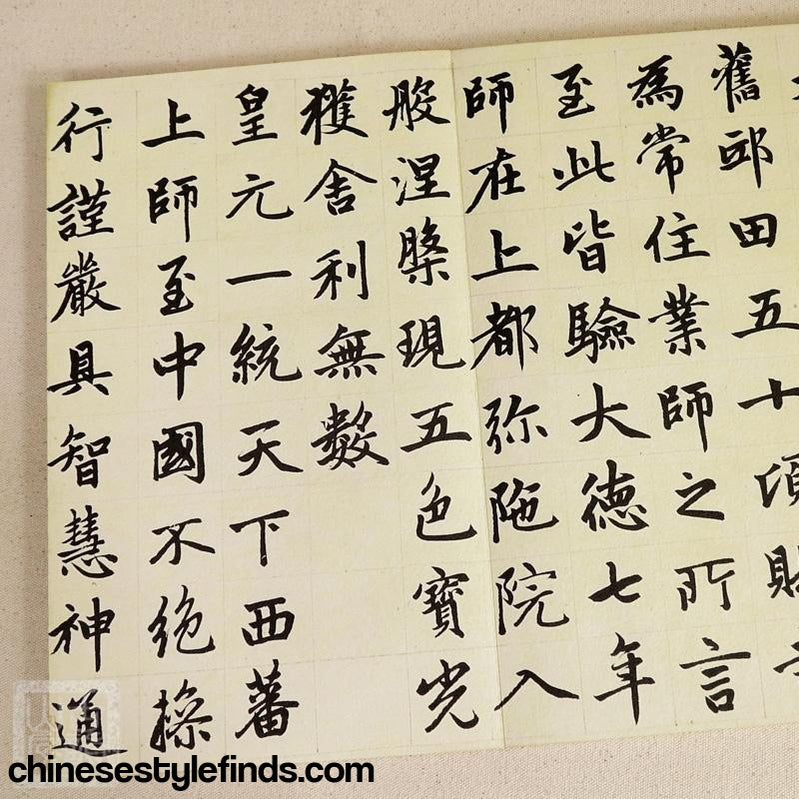 舊邱田五十頃賜
為常住業師之所言
至此皆驗大德七年
師在上都弥陁院入
般涅槃現五色寶光
獲舍利無數
皇元一統天下西蕃
上師至中國不絕操
行謹嚴具智慧神通
chinesestylefinds.com